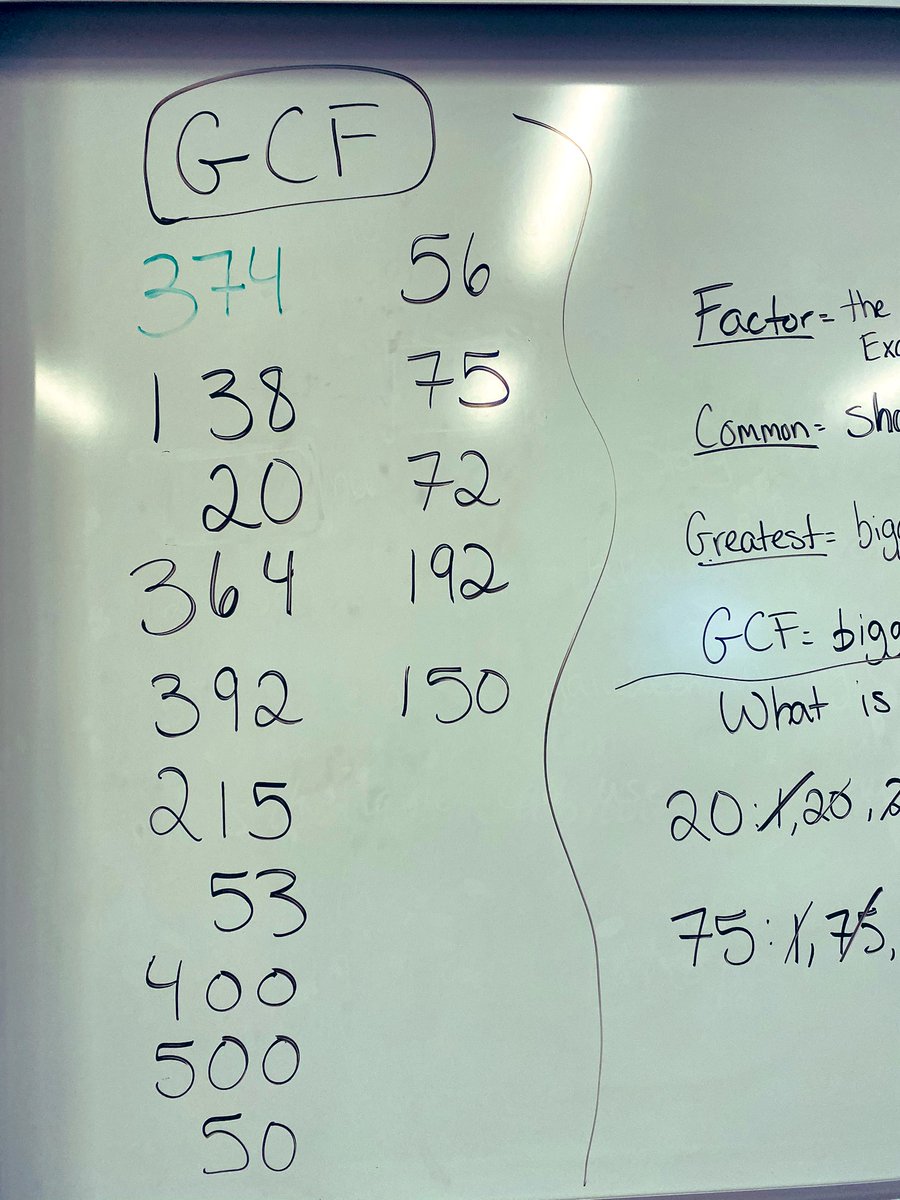 GCF
374
138
20
364
392
215
53
400
500
50
56
75
72
192
150
Factor = the
Common =
Greatest =
GCF =
What is
20: 1, 20,
75: 1, 75,